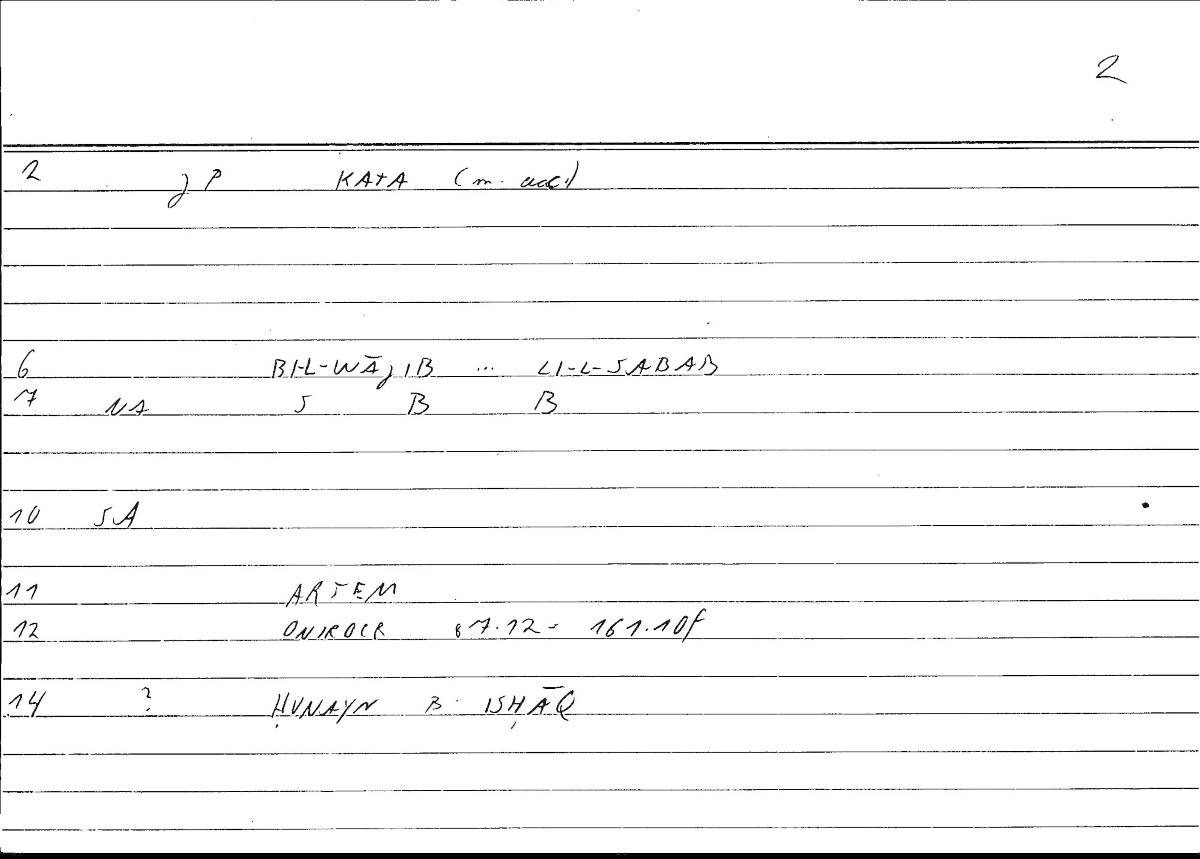 2
2 J P KATA (m. acc.)
6 BI-L-WĀJIB ... LI-L-SABAB
7 NA S B B
10 SA
11 ARTEM
12 ONIROCR 87.12 - 161.10f
14 ? ḤUNAYN B. ISḤĀQ